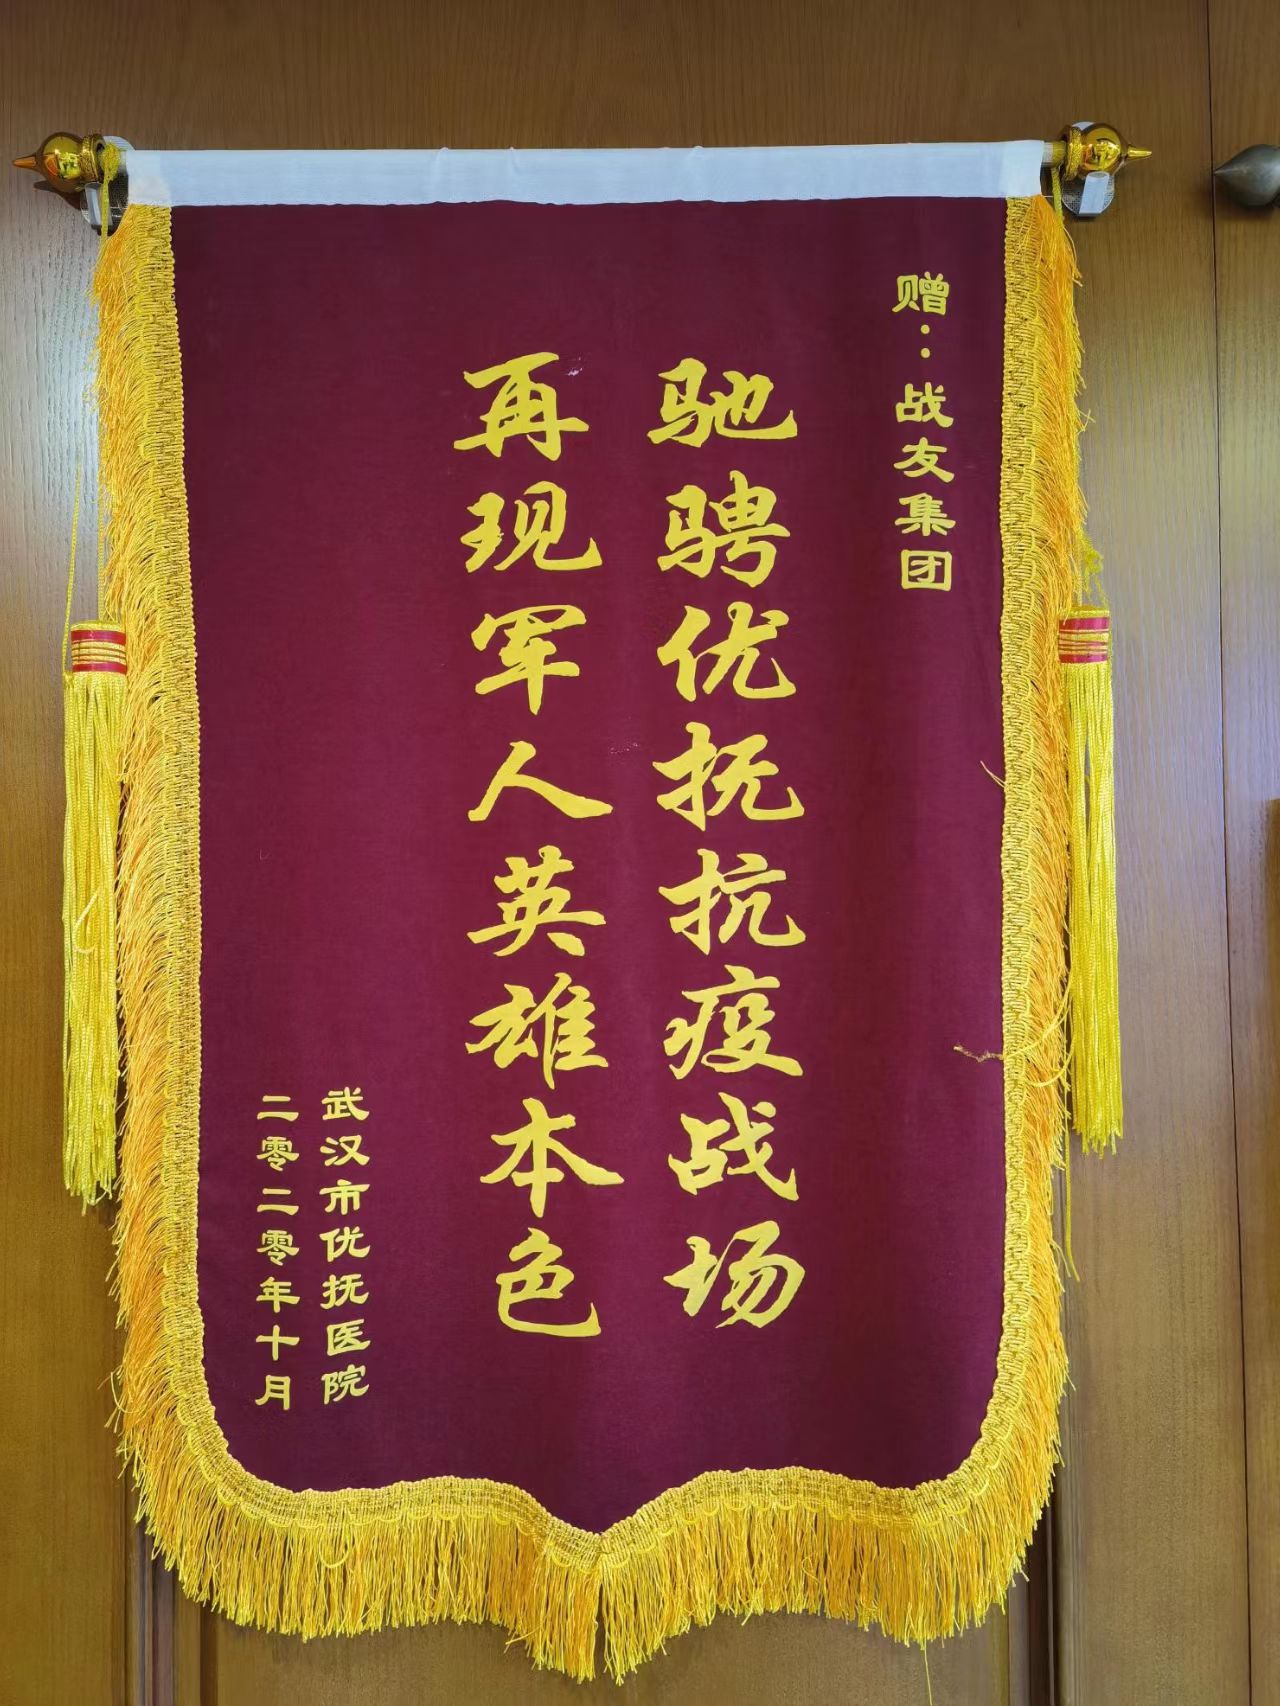 赠：战友集团
驰骋优抚抗疫战场
再现军人英雄本色
武汉市优抚医院
二零二零年十月